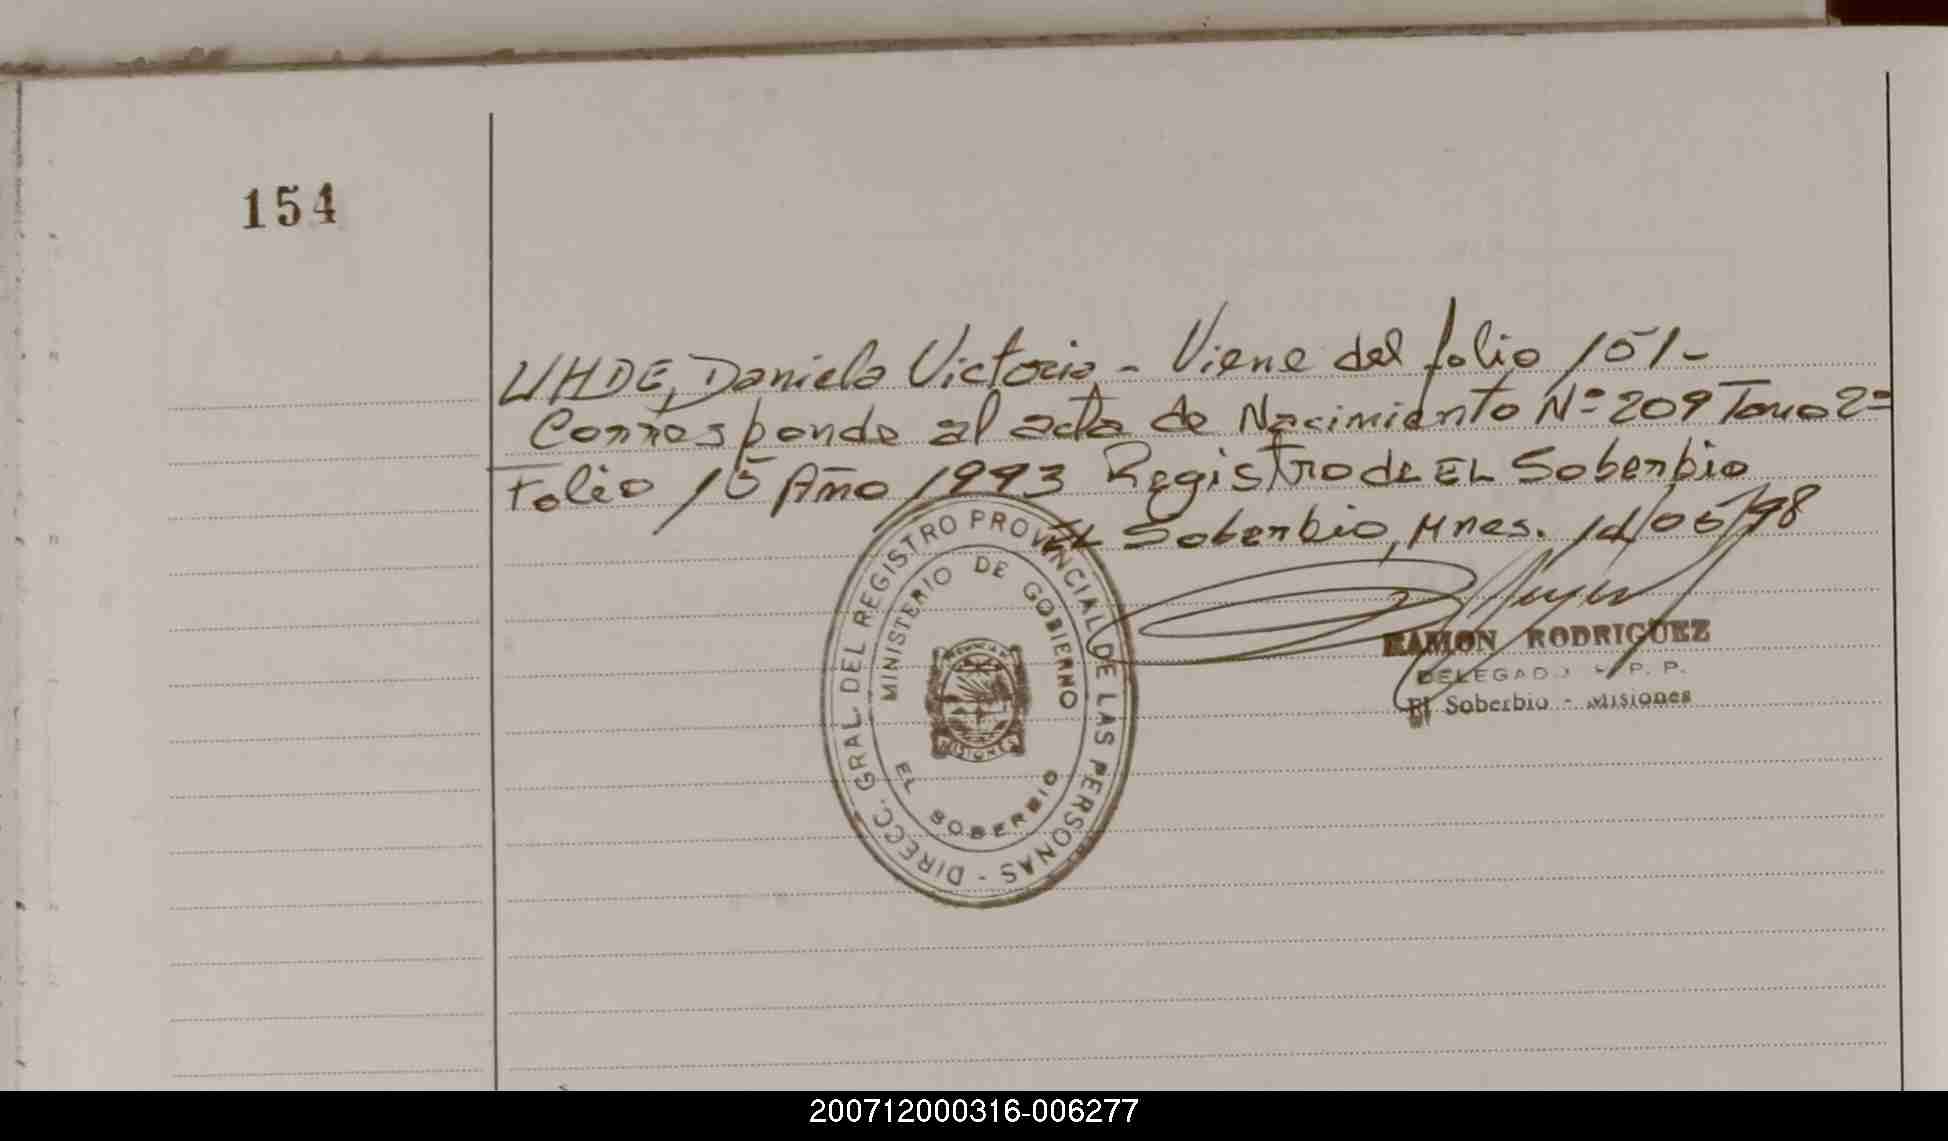 154
UHDE, Daniela Victoria - Viene del folio 151-
Corresponde al acta de Nacimiento Nº 209 Tomo 2º
Folio 15 Año 1993 Registro de EL Soberbio
EL Soberbio, Mnes. 14/05/98
DIRECC. GRAL. DEL REGISTRO PROVINCIAL DE LAS PERSONAS -
MINISTERIO DE GOBIERNO
MISIONES
EL SOBERBIO
RAMON RODRIGUEZ
DELEGADO P. P.
El Soberbio - Misiones
200712000316-006277